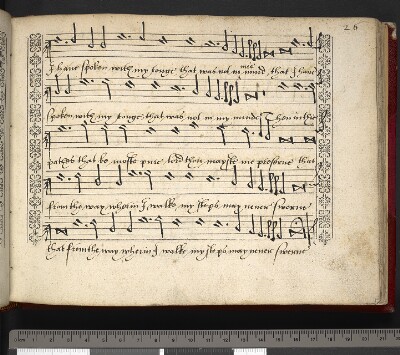 26
I have spoken with my tonge that was not in my mind, that I have
spoken with my tonge that was not in my minde Then in thie
pathes that be moste pure lord thou mayste me preserve that
from the way wherin I walke my steps may never swerve
that from the way wherin I walke my steps may never swerve